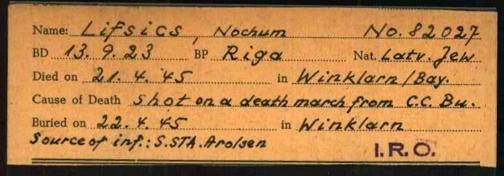 Name: Lifsics, Nochum No. 82027
BD 13.9.23 BP Riga Nat. Latv. Jew
Died on 21.4.45 in Winklarn/Bay.
Cause of Death Shot on a death march from C.C. Bu.
Buried on 22.4.45 in Winklarn
Source of inf.: S.STA. Arolsen
I.R.O.